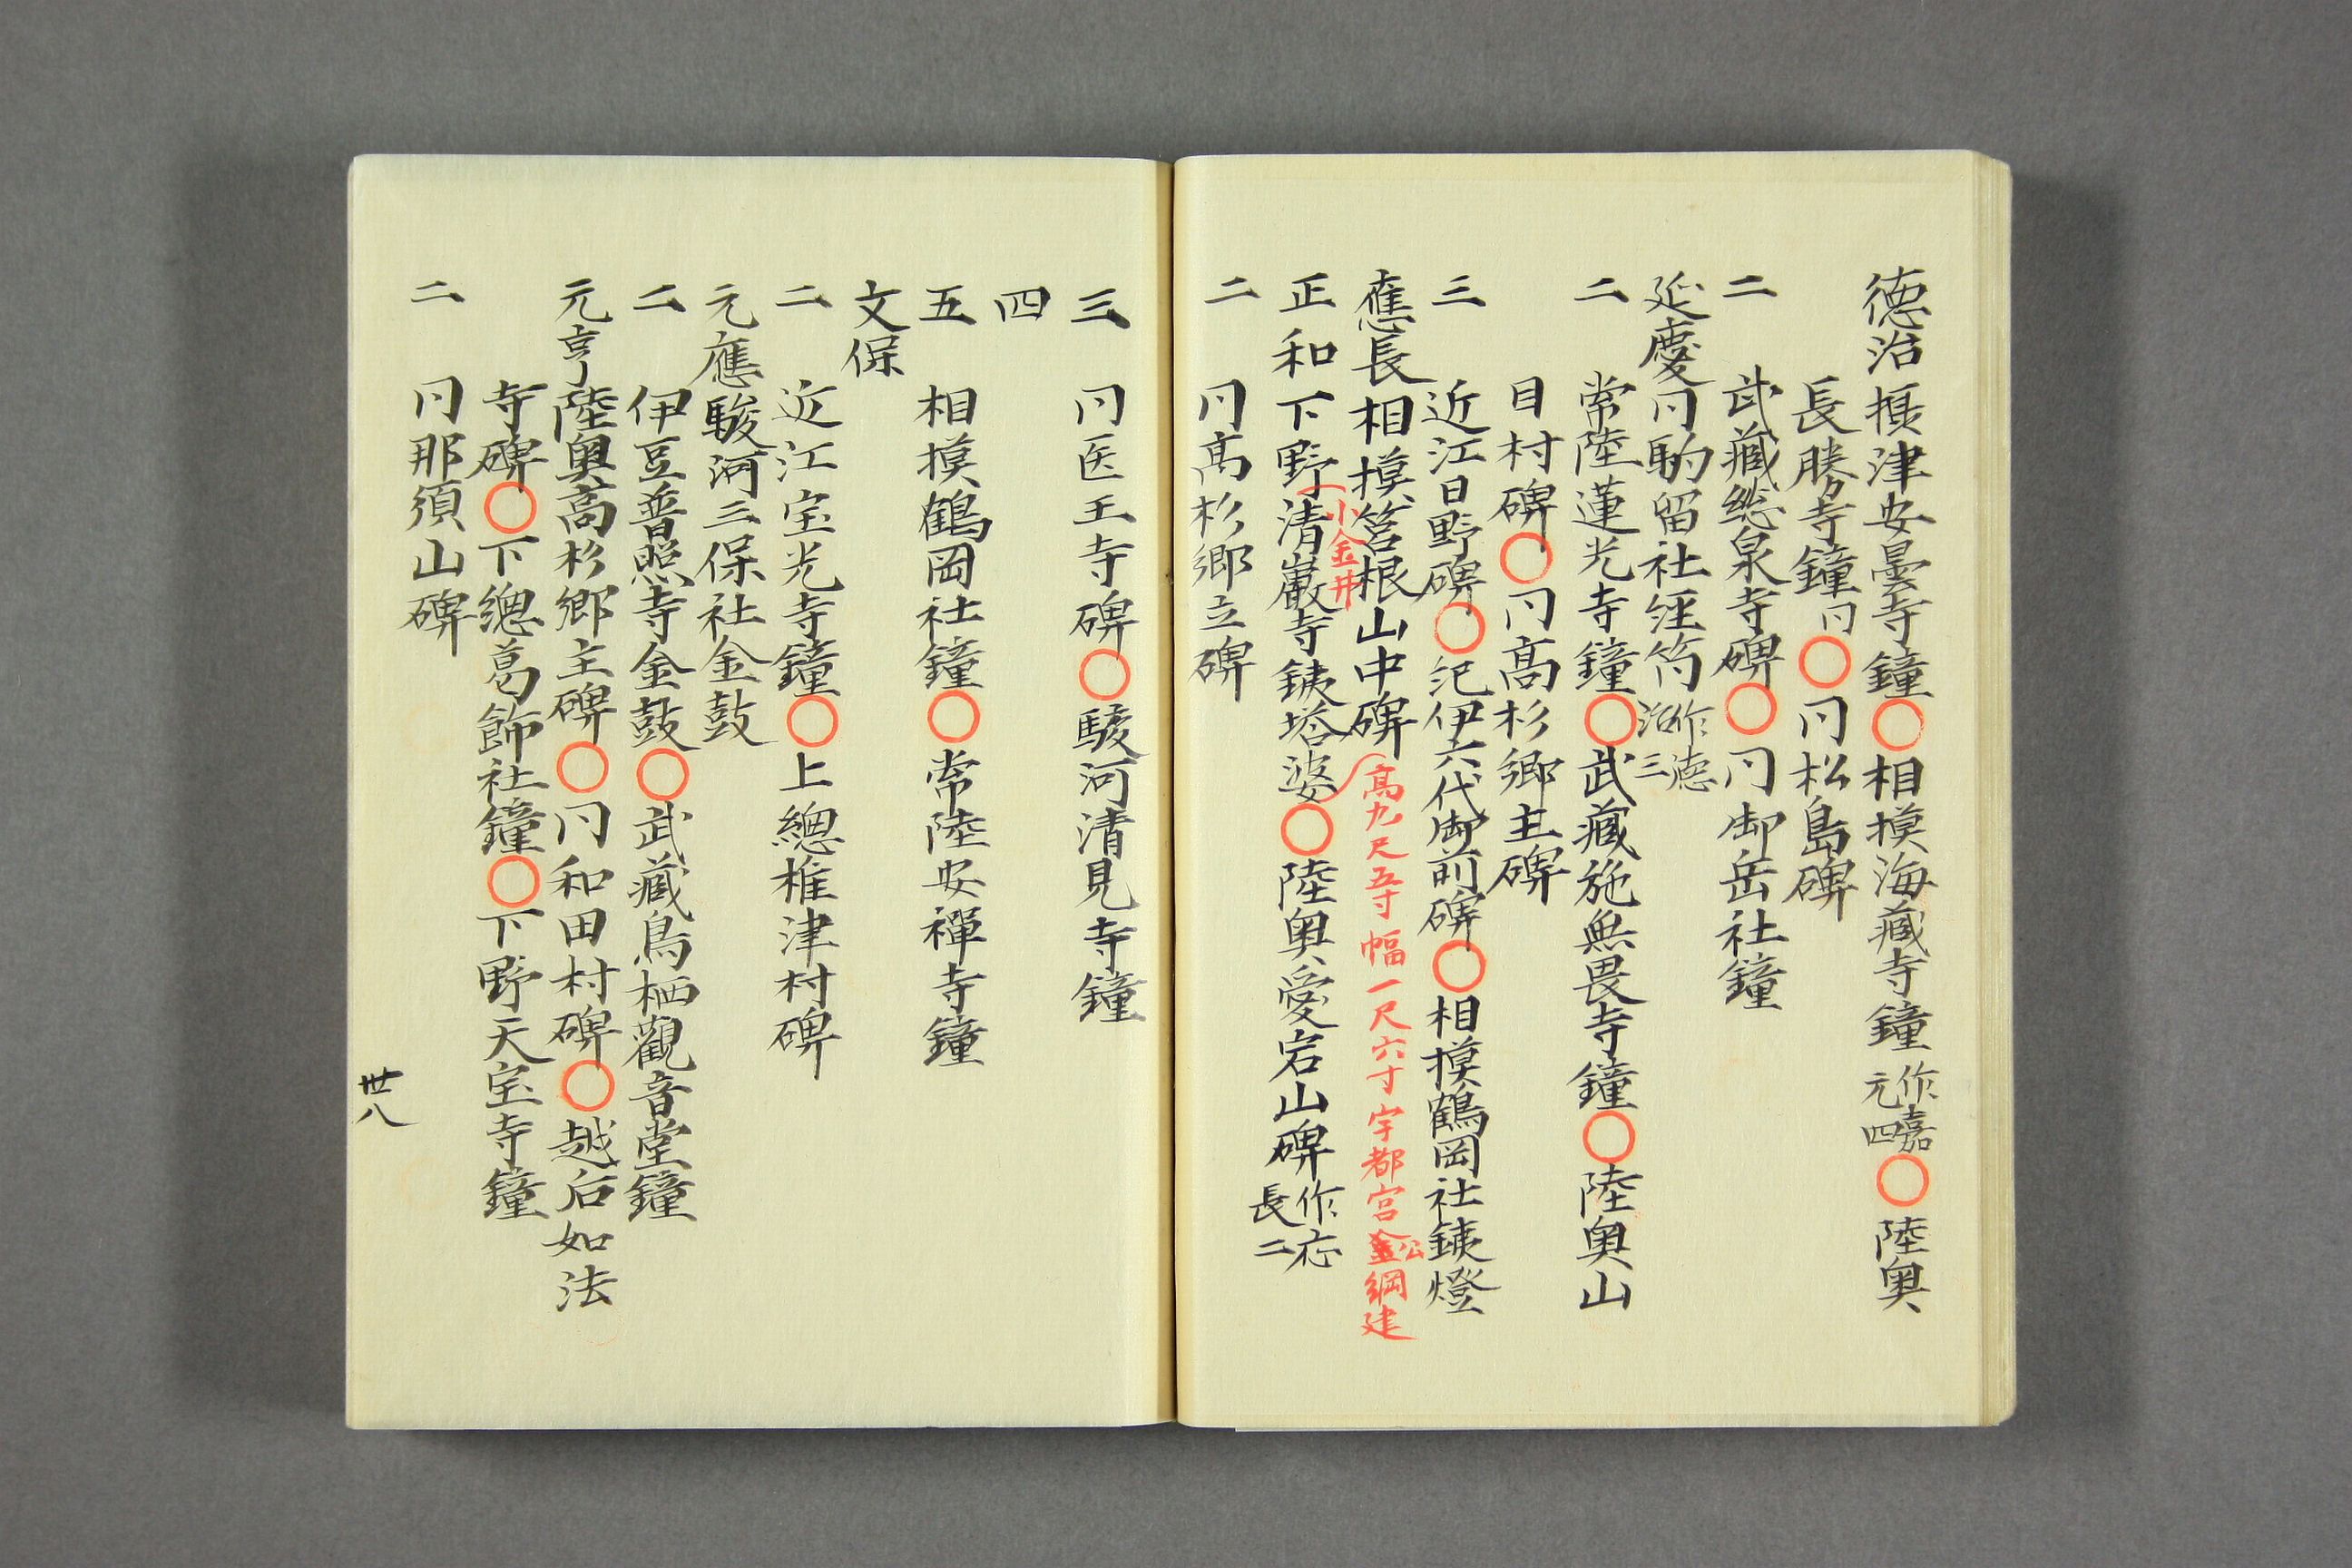 德治 摂津安曇寺鐘〇相摸海蔵寺鐘 作嘉元四〇陸奥
長勝寺鐘 同〇同松島碑
二 武蔵総泉寺碑〇同御岳社鐘
延慶 同駒留社経筒 作徳治三
二 常陸蓮光寺鐘〇武蔵施無畏寺鐘〇陸奥山
目村碑〇同髙杉郷主碑
三 近江日野碑〇紀伊六代御前碑〇相摸鶴岡社銕燈
應長 相摸筥根山中碑
小金井
髙九尺五寸 幅一尺六寸 宇都宮公綱建
正和 下野清巌寺銕塔婆〇陸奥愛宕山碑 作応長二
二 同髙杉郷立碑
三 同医王寺碑〇駿河清見寺鐘
四
五 相摸鶴岡社鐘〇常陸安禅寺鐘
文保
二 近江宝光寺鐘〇上總椎津村碑
元應 駿河三保社金鼓
二 伊豆普照寺金鼓〇武蔵鳥栖觀音堂鐘
元亨 陸奥高杉郷主碑〇同和田村碑〇越后如法
寺碑〇下總葛飾社鐘〇下野天宝寺鐘
二 同那須山碑
卅八